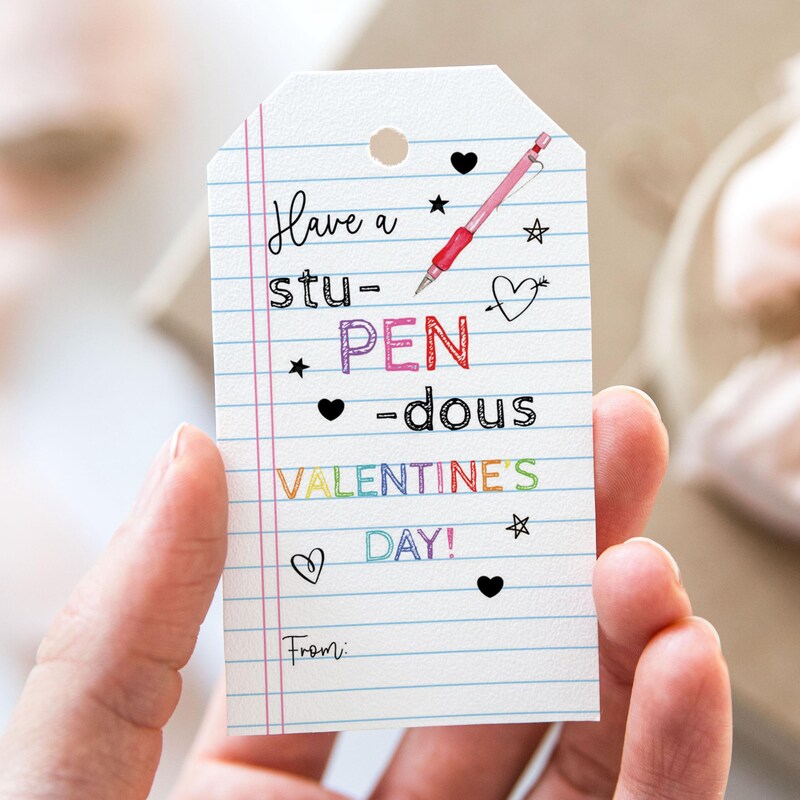 Have a
stu-
PEN
-dous
VALENTINE'S
DAY!
From: